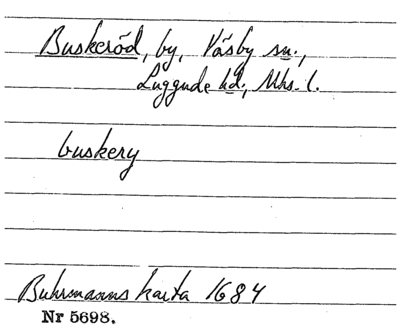 Buskeröd, by, Väsby sn.,
Luggude hd., Mhs. l.
buskery
Buhrmanns karta 1684
Nr 5698.